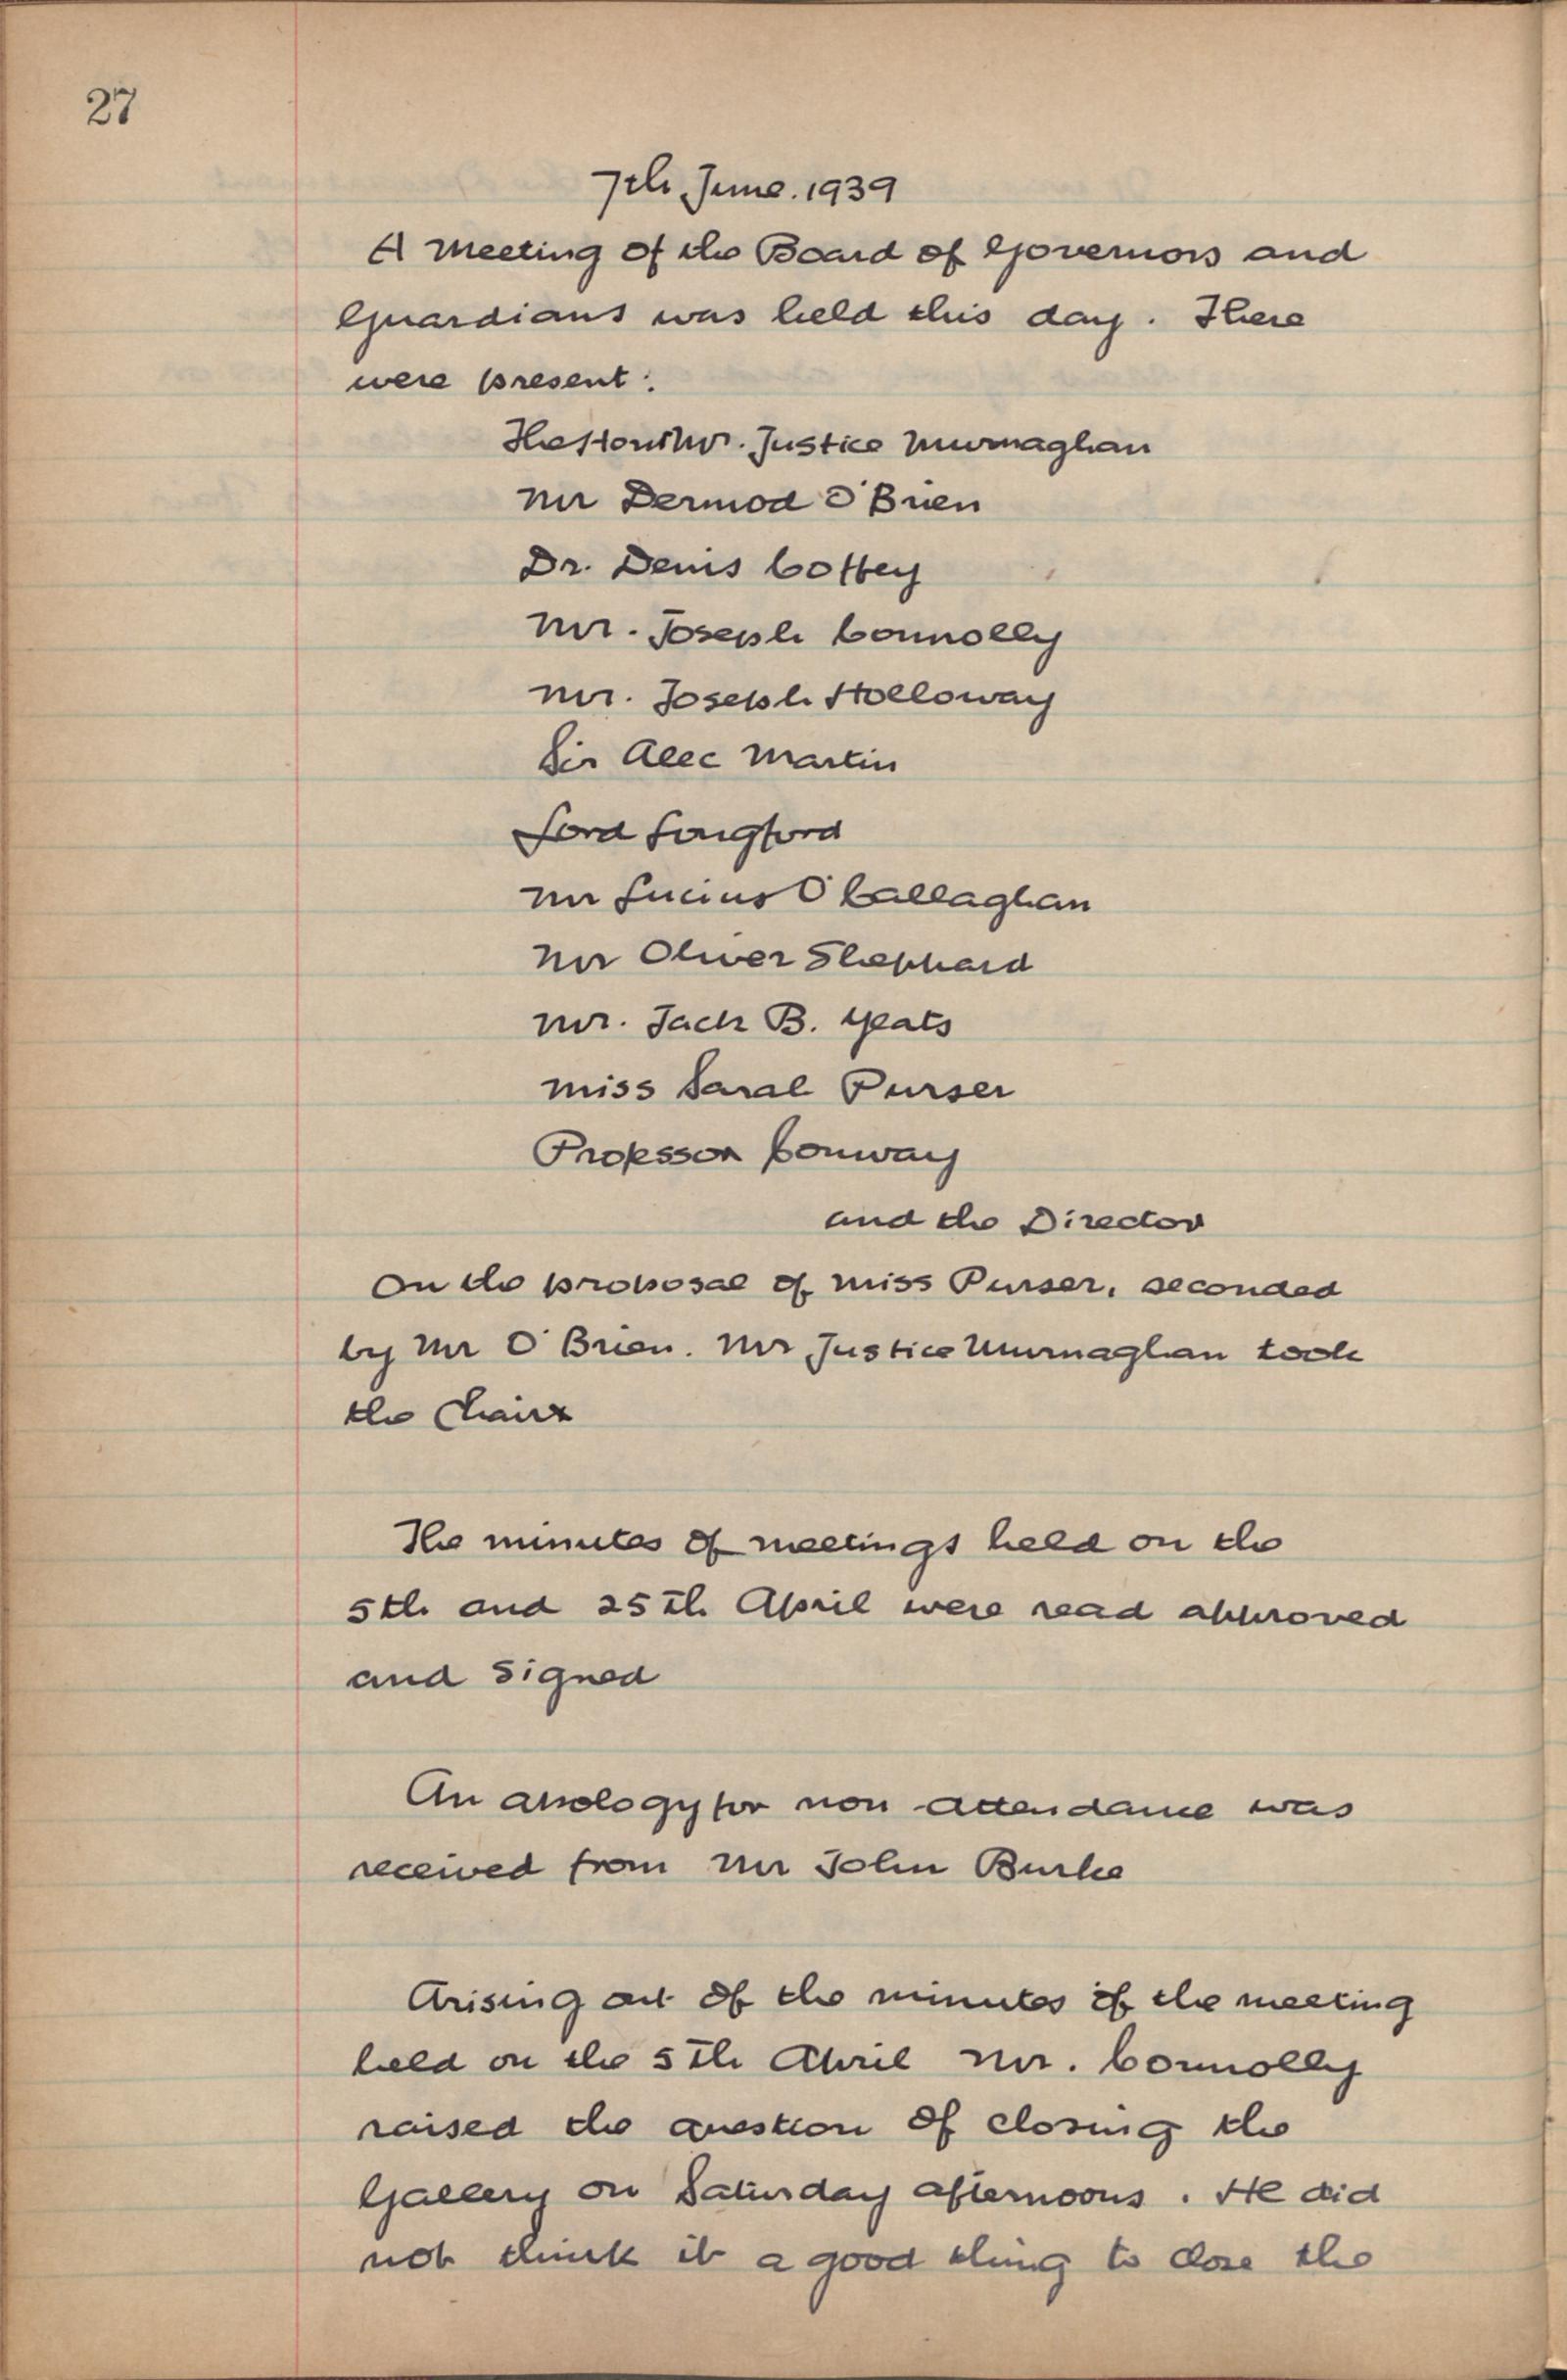 27
7th June. 1939
A Meeting of the Board of Governors and
Guardians was held this day. There
were present:
The Hon. Mr. Justice Murnaghan
Mr Dermod O'Brien
Dr. Denis Coffey
Mr. Joseph Connolly
Mr. Joseph Holloway
Sir Alec Martin
Lord Longford
Mr Lucius O'Callaghan
Mr Oliver Sheppard
Mr. Jack B. Yeats
Miss Sarah Purser
Professor Conway
and the Director
On the proposal of Miss Purser, seconded
by Mr O'Brien. Mr Justice Murnaghan took
the Chair
The minutes of meetings held on the
5th and 25th April were read approved
and signed
An apology for non-attendance was
received from Mr John Burke
Arising out of the minutes of the meeting
held on the 5th April Mr. Connolly
raised the question of closing the
Gallery on Saturday afternoons. He did
not think it a good thing to close the